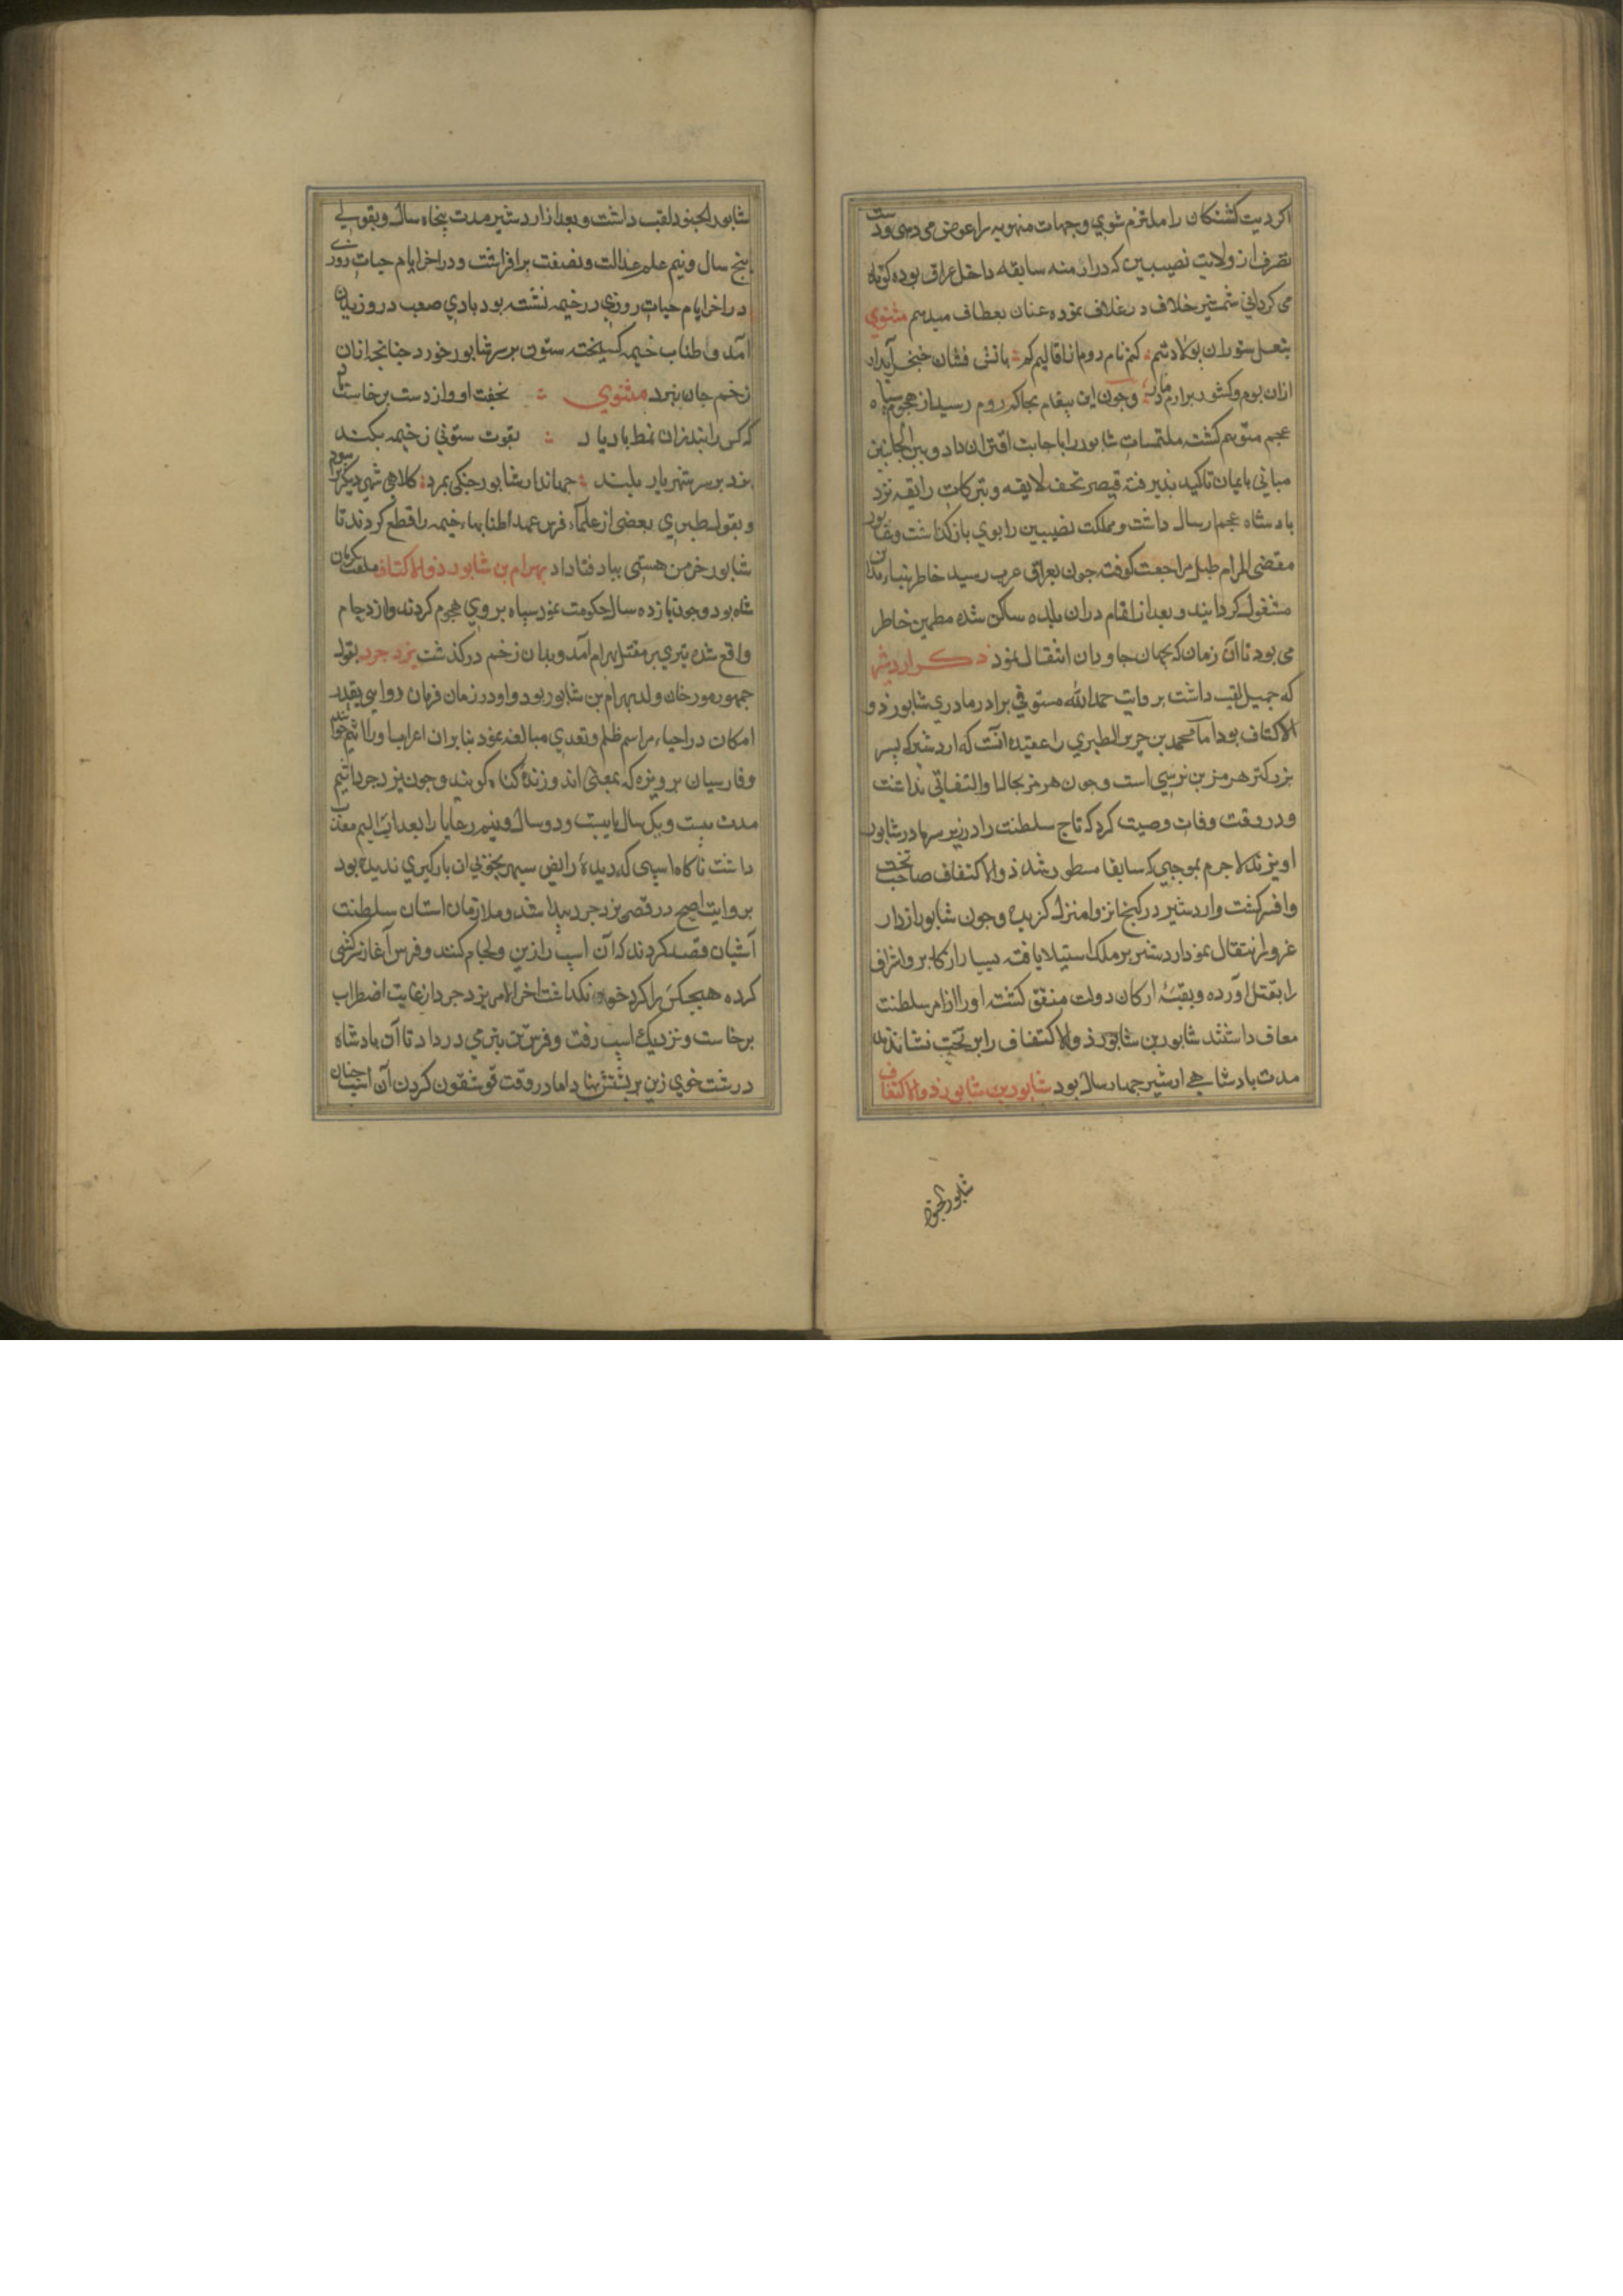 اکر دیت کشتکان را ملتزم شوی و جهات منهوبه را عوض می دهی و دست
تصرف از ولایت نصیبین که در ازمنه سابقه داخل عراق بوده کوتاه
می کردانی شمشیر خلاف در غلاف نموده عنان بعطاف میدهم مثنوی
بنعل ستوران بولاد سم کنم نام روم از اقالیم کم باتش فشان خنجر آبدار
ازان بوم و کشور برارم دمار و جون این پیغام بحاکم روم رسید از هجوم سپاه
عجم متوهم کشته ملتمسات شابور را باجابت اقتران داد و بین الجانبین
مبانی بایمان تاکید پذیرفته قیصر تحف لایقه و تبرکات رایقه نزد
بادشاه عجم ارسال داشت و مملکت نصیبین را بوی باز کذاشت و شابور
مقضی المرام طبل مراجعت کوفته جون بعراق عرب رسید خاطر ببناء مداین
مشغول کردانید و بعد از اتمام دران بلده ساکن شده مطمین خاطر
می بود تا آن زمان که بجهان جاودان انتقال نمود ذکر اردشیر
که جمیل لقب داشت بروایت حمدالله مستوفی برادر مادری شابور ذو
الاکتاف بود اما محمد بن جریر الطبری را عقیده انست که اردشیر که پسر
بزرکتر هرمز بن نرسی است و جون هرمز بحال او التفاتی نداشت
و در وقت وفات وصیت کرد که تاج سلطنت را در زیر سر مادر شابور
اویزند لاجرم بموجبی که سابقا مسطور شد ذوالاکتاف صاحب تخت
و افسر کشت و اردشیر در کنج انزوا منزل کزید و جون شابور از دار
غرور انتقال نمود اردشیر بر ملک استیلا یافته بسیار از اکابر و اشراف
را بقتل آورده و بقیه ارکان دولت متفق کشته او را از امر سلطنت
معاف داشتند شابور بن شابور ذوالاکتاف را بر تخت نشاندند
مدت بادشاهی اردشیر جهار سال بود شابور بن شابور ذوالاکتاف
شابور الجنود
شابور الجنود لقب داشت و بعد از اردشیر مدت پنجاه سال و بقولی
پنج سال و نیم علم عدالت و نصفت برافراشت و در اخر ایام حیات روزی
در اخر ایام حیات روزی در خیمه نشسته بود بادی صعب در وزیدن
آمد و طناب خیمه کسیخته ستون بر سر شابور خورد جنانجه ازان
زخم جان نبرد مثنوی نخفت او و از دست برخاست
که کس را نبد زان نمط باد یاد بقوت ستونی ز خیمه بکند
بزد بر سر شهریار بلند جهاندار شابور جنکی بمرد کلاهی شهی دیکر را سپرد
و بقول طبری بعضی از علماء فرس عمدا طنابهاء خیمه را قطع کردند تا
شابور خرمن هستی بباد فنا داد بهرام بن شابور ذوالاکتاف ملقب بکرمان
شاه بود و جون یازده سال حکومت نمود سپاه بر وی هجوم کردند و ازدحام
واقع شده تیری بر مقتل بهرام آمد و بدان زخم درکذشت یزدجرد بقول
جمهور مورخان ولد بهرام بن شابور بود و او در زمان فرمان روایی بقدر
امکان در احیاء مراسم ظلم و تعدی مبالغه نمود بنا بران اعراب او را اثیم خوانند
و فارسیان بر وبزه که بمعنی اندوزنده کناه کویند و جون یزدجرد اثیم
مدت بیست و یک سال یا بیست و دو سال و نیم رعایا را بعذاب الیم معذب
داشت ناکاه اسپی که دیدهٔ رایض سپهر بخوبی ان بارکیری ندیده بود
بروایت اصح در قصر یزدجرد پیدا شد و ملازمان استان سلطنت
آشیان قصد کردند که آن اسپ را زین و لجام کنند و فرس آغاز سرکشی
کرده هیچکس را کرد خود نکذاشت اخر الامر یزدجرد از غایت اضطراب
برخاست و نزدیک اسپ رفت و فرس تن بنرمی در داد تا آن بادشاه
درشت خوی زین بر پشتش نهاد اما در وقت قوشقون کردن آن اسپ جنان